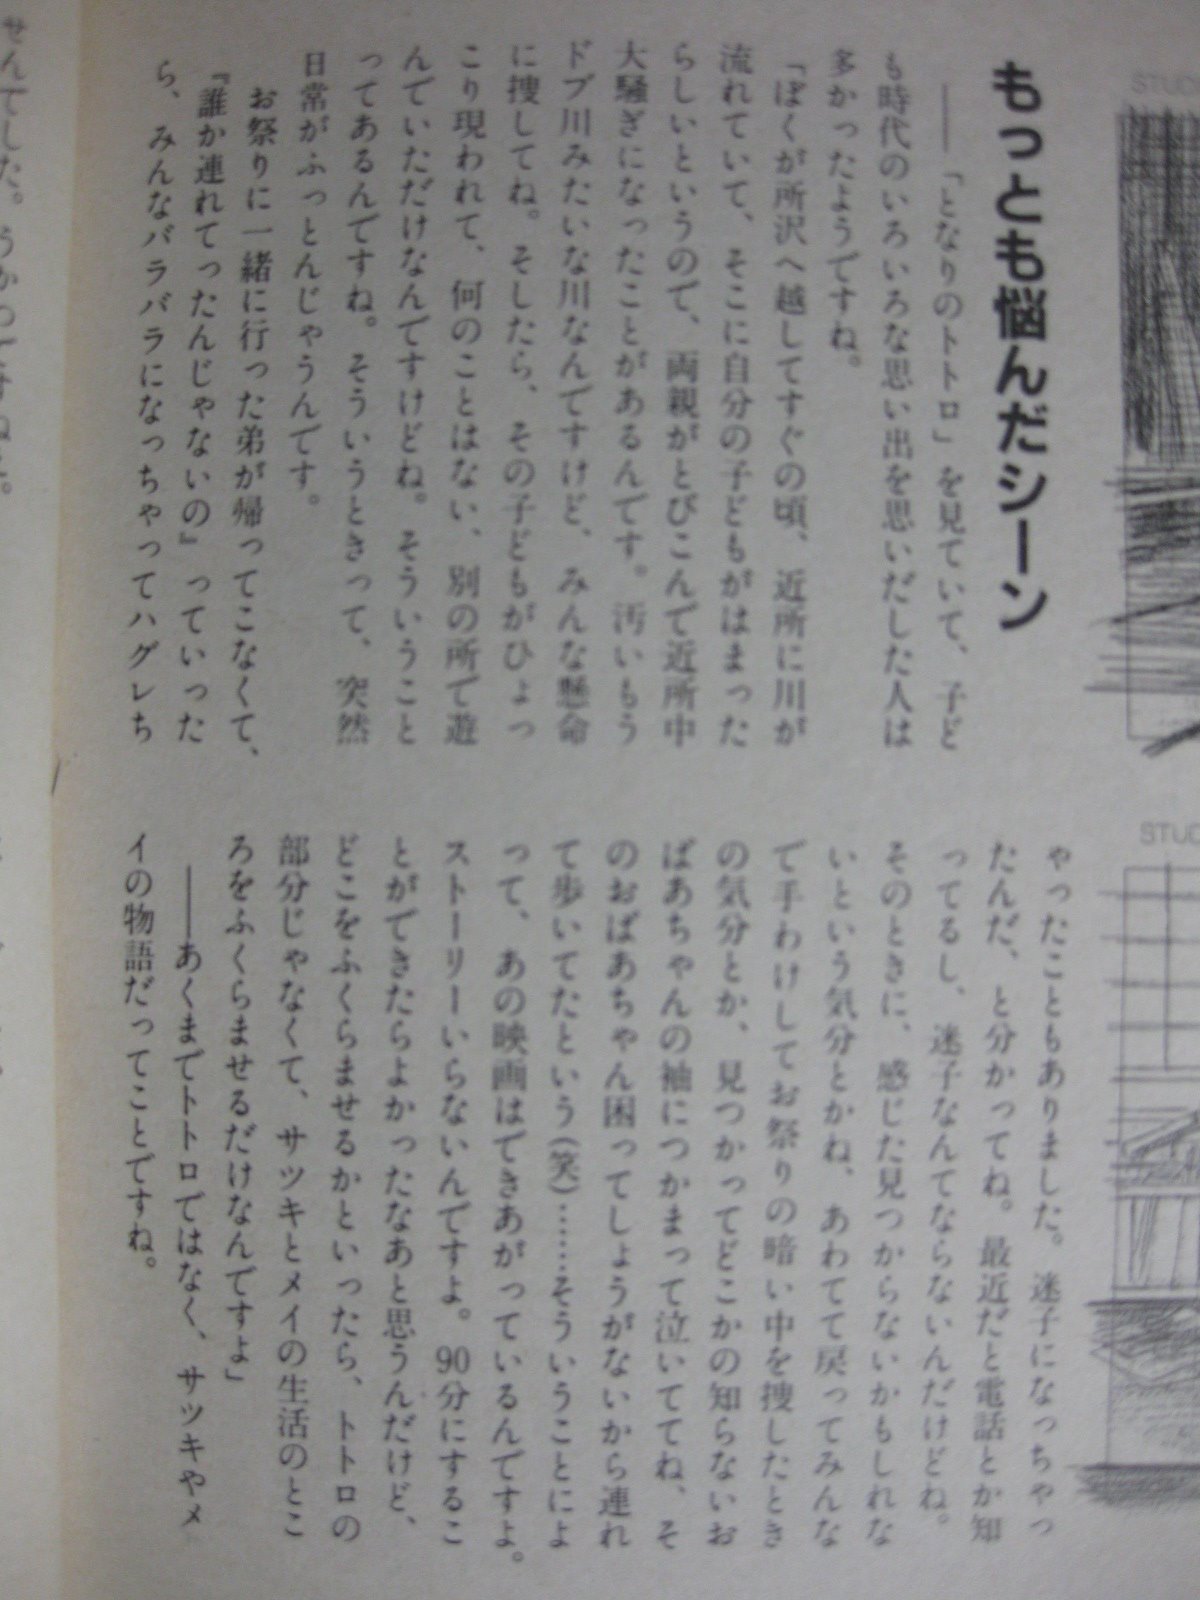 もっとも悩んだシーン
――「となりのトトロ」を見ていて、子ど
も時代のいろいろな思い出を思いだした人は
多かったようですね。
「ぼくが所沢へ越してすぐの頃、近所に川が
流れていて、そこに自分の子どもがはまった
らしいというので、両親がとびこんで近所中
大騒ぎになったことがあるんです。汚いもう
ドブ川みたいな川なんですけど、みんな懸命
に捜してね。そしたら、その子どもがひょっ
こり現われて、何のことはない、別の所で遊
んでいただけなんですけどね。そういうこと
ってあるんですね。そういうときって、突然
日常がふっとんじゃうんです。
お祭りに一緒に行った弟が帰ってこなくて、
『誰か連れてったんじゃないの』っていった
ら、みんなバラバラになっちゃってハグレち
ゃったこともありました。迷子になっちゃっ
たんだ、と分かってね。最近だと電話とか知
ってるし、迷子なんてならないんだけどね。
そのときに、感じた見つからないかもしれな
いという気分とかね、あわてて戻ってみんな
で手わけしてお祭りの暗い中を捜したとき
の気分とか、見つかってどこかの知らないお
ばあちゃんの袖につかまって泣いててね、そ
のおばあちゃん困ってしょうがないから連れ
て歩いてたという(笑)……そういうことによ
って、あの映画はできあがっているんですよ。
ストーリーいらないんですよ。90分にするこ
とができたらよかったなあと思うんだけど、
どこをふくらませるかといったら、トトロの
部分じゃなくて、サツキとメイの生活のとこ
ろをふくらませるだけなんですよ」
――あくまでトトロではなく、サツキやメ
イの物語だってことですね。
STUD
STUD
せんでした。